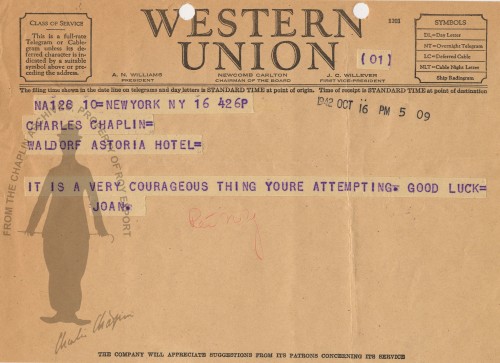 CLASS OF SERVICE
This is a full-rate
Telegram or Cable-
gram unless its de-
ferred character is in-
dicated by a suitable
symbol above or pre-
ceding the address.
WESTERN
UNION
1201
(01)
SYMBOLS
DL=Day Letter
NT=Overnight Telegram
LC=Deferred Cable
NLT=Cable Night Letter
Ship Radiogram
A. N. WILLIAMS
PRESIDENT
NEWCOMB CARLTON
CHAIRMAN OF THE BOARD
J. C. WILLEVER
FIRST VICE-PRESIDENT
The filing time shown in the date line on telegrams and day letters is STANDARD TIME at point of origin. Time of receipt is STANDARD TIME at point of destination
NA126 10=NEWYORK NY 16 426P
1942 OCT 16 PM 5 09
CHARLES CHAPLIN=
WALDORF ASTORIA HOTEL=
IT IS A VERY COURAGEOUS THING YOURE ATTEMPTING. GOOD LUCK=
JOAN.
FROM THE CHAPLIN ARCHIVES
PROPERTY OF ROY EXPORT
Charlie Chaplin
THE COMPANY WILL APPRECIATE SUGGESTIONS FROM ITS PATRONS CONCERNING ITS SERVICE